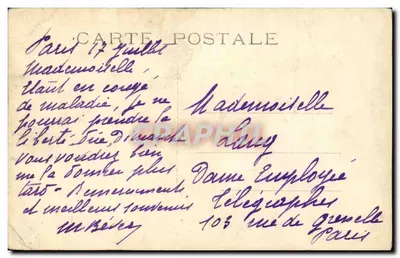 CARTE POSTALE
Paris 17 Juillet
Mademoiselle,
Etant en congé
de maladie, je ne
pourrai prendre la
liberté
vous voudrez bien
me la donner plus
tard. Remerciements
et meilleurs souvenirs
Mademoiselle
Dame Employée
Télégraphes
103 rue de Grenelle
Paris